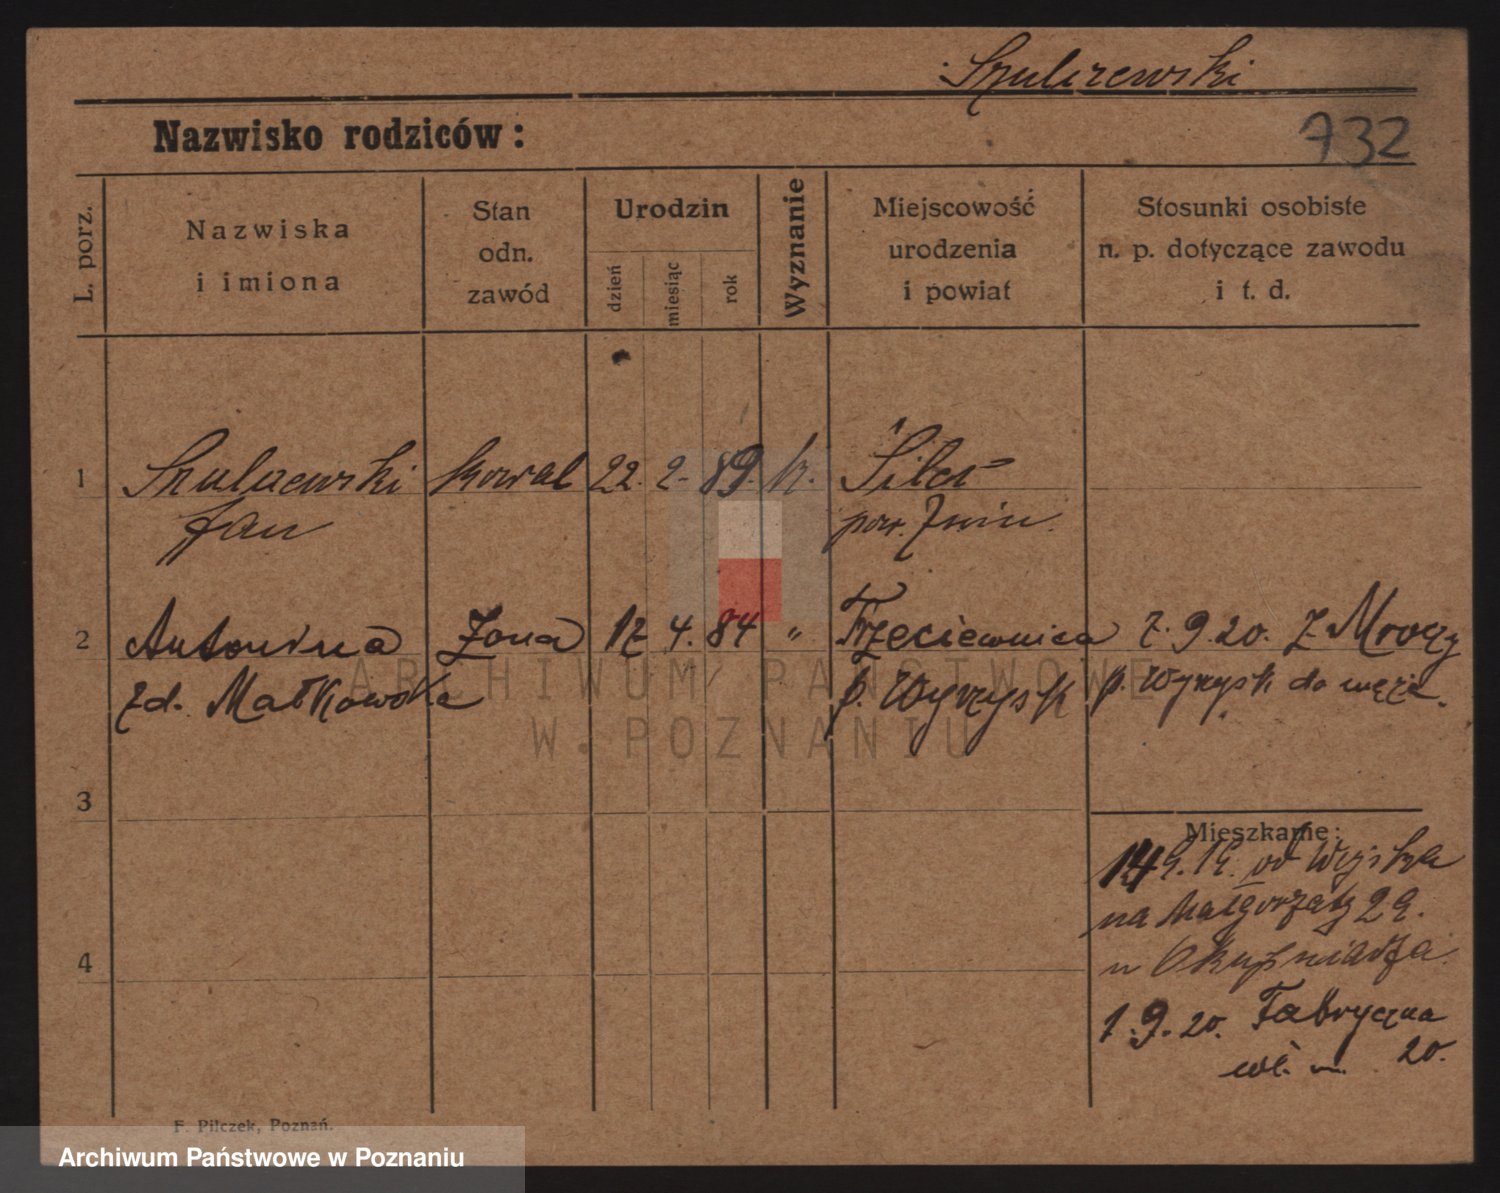 Szulczewski
Nazwisko rodziców:
732
L. porz.
Nazwiska
i imiona
Stan
odn.
zawód
Urodzin
dzień
miesiąc
rok
Wyznanie
Miejscowość
urodzenia
i powiat
Stosunki osobiste
n. p. dotyczące zawodu
i t. d.
1 Szulczewski kowal 22. 2. 89. k.
Jan pow. Żnin.
2 Antonina Żona 17 4. 84 " Trzeciewnica 7. 9 20. Z Mroczy
zd. Małkowska p. Wyrzysk p. Wyrzysk do męża.
3
4
Mieszkanie:
14 9. 19. od Wojska
na Małgorzaty 29.
u Okupniadza.
1. 9. 20. Fabryczna
20.
F. Pilczek, Poznań.
ARCHIWUM PAŃSTWOWE
W POZNANIU
Archiwum Państwowe w Poznaniu